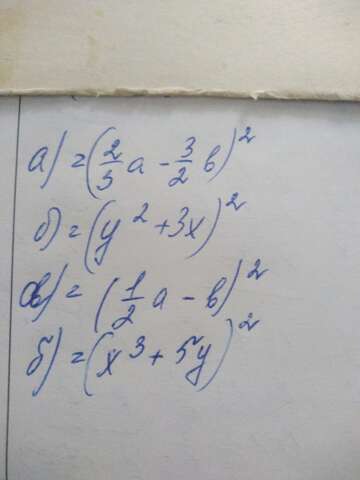 а) = (2/3 a - 3/2 b)²
б) = (y² + 3x)²
а) = (1/2 a - b)²
б) = (x³ + 5y)²